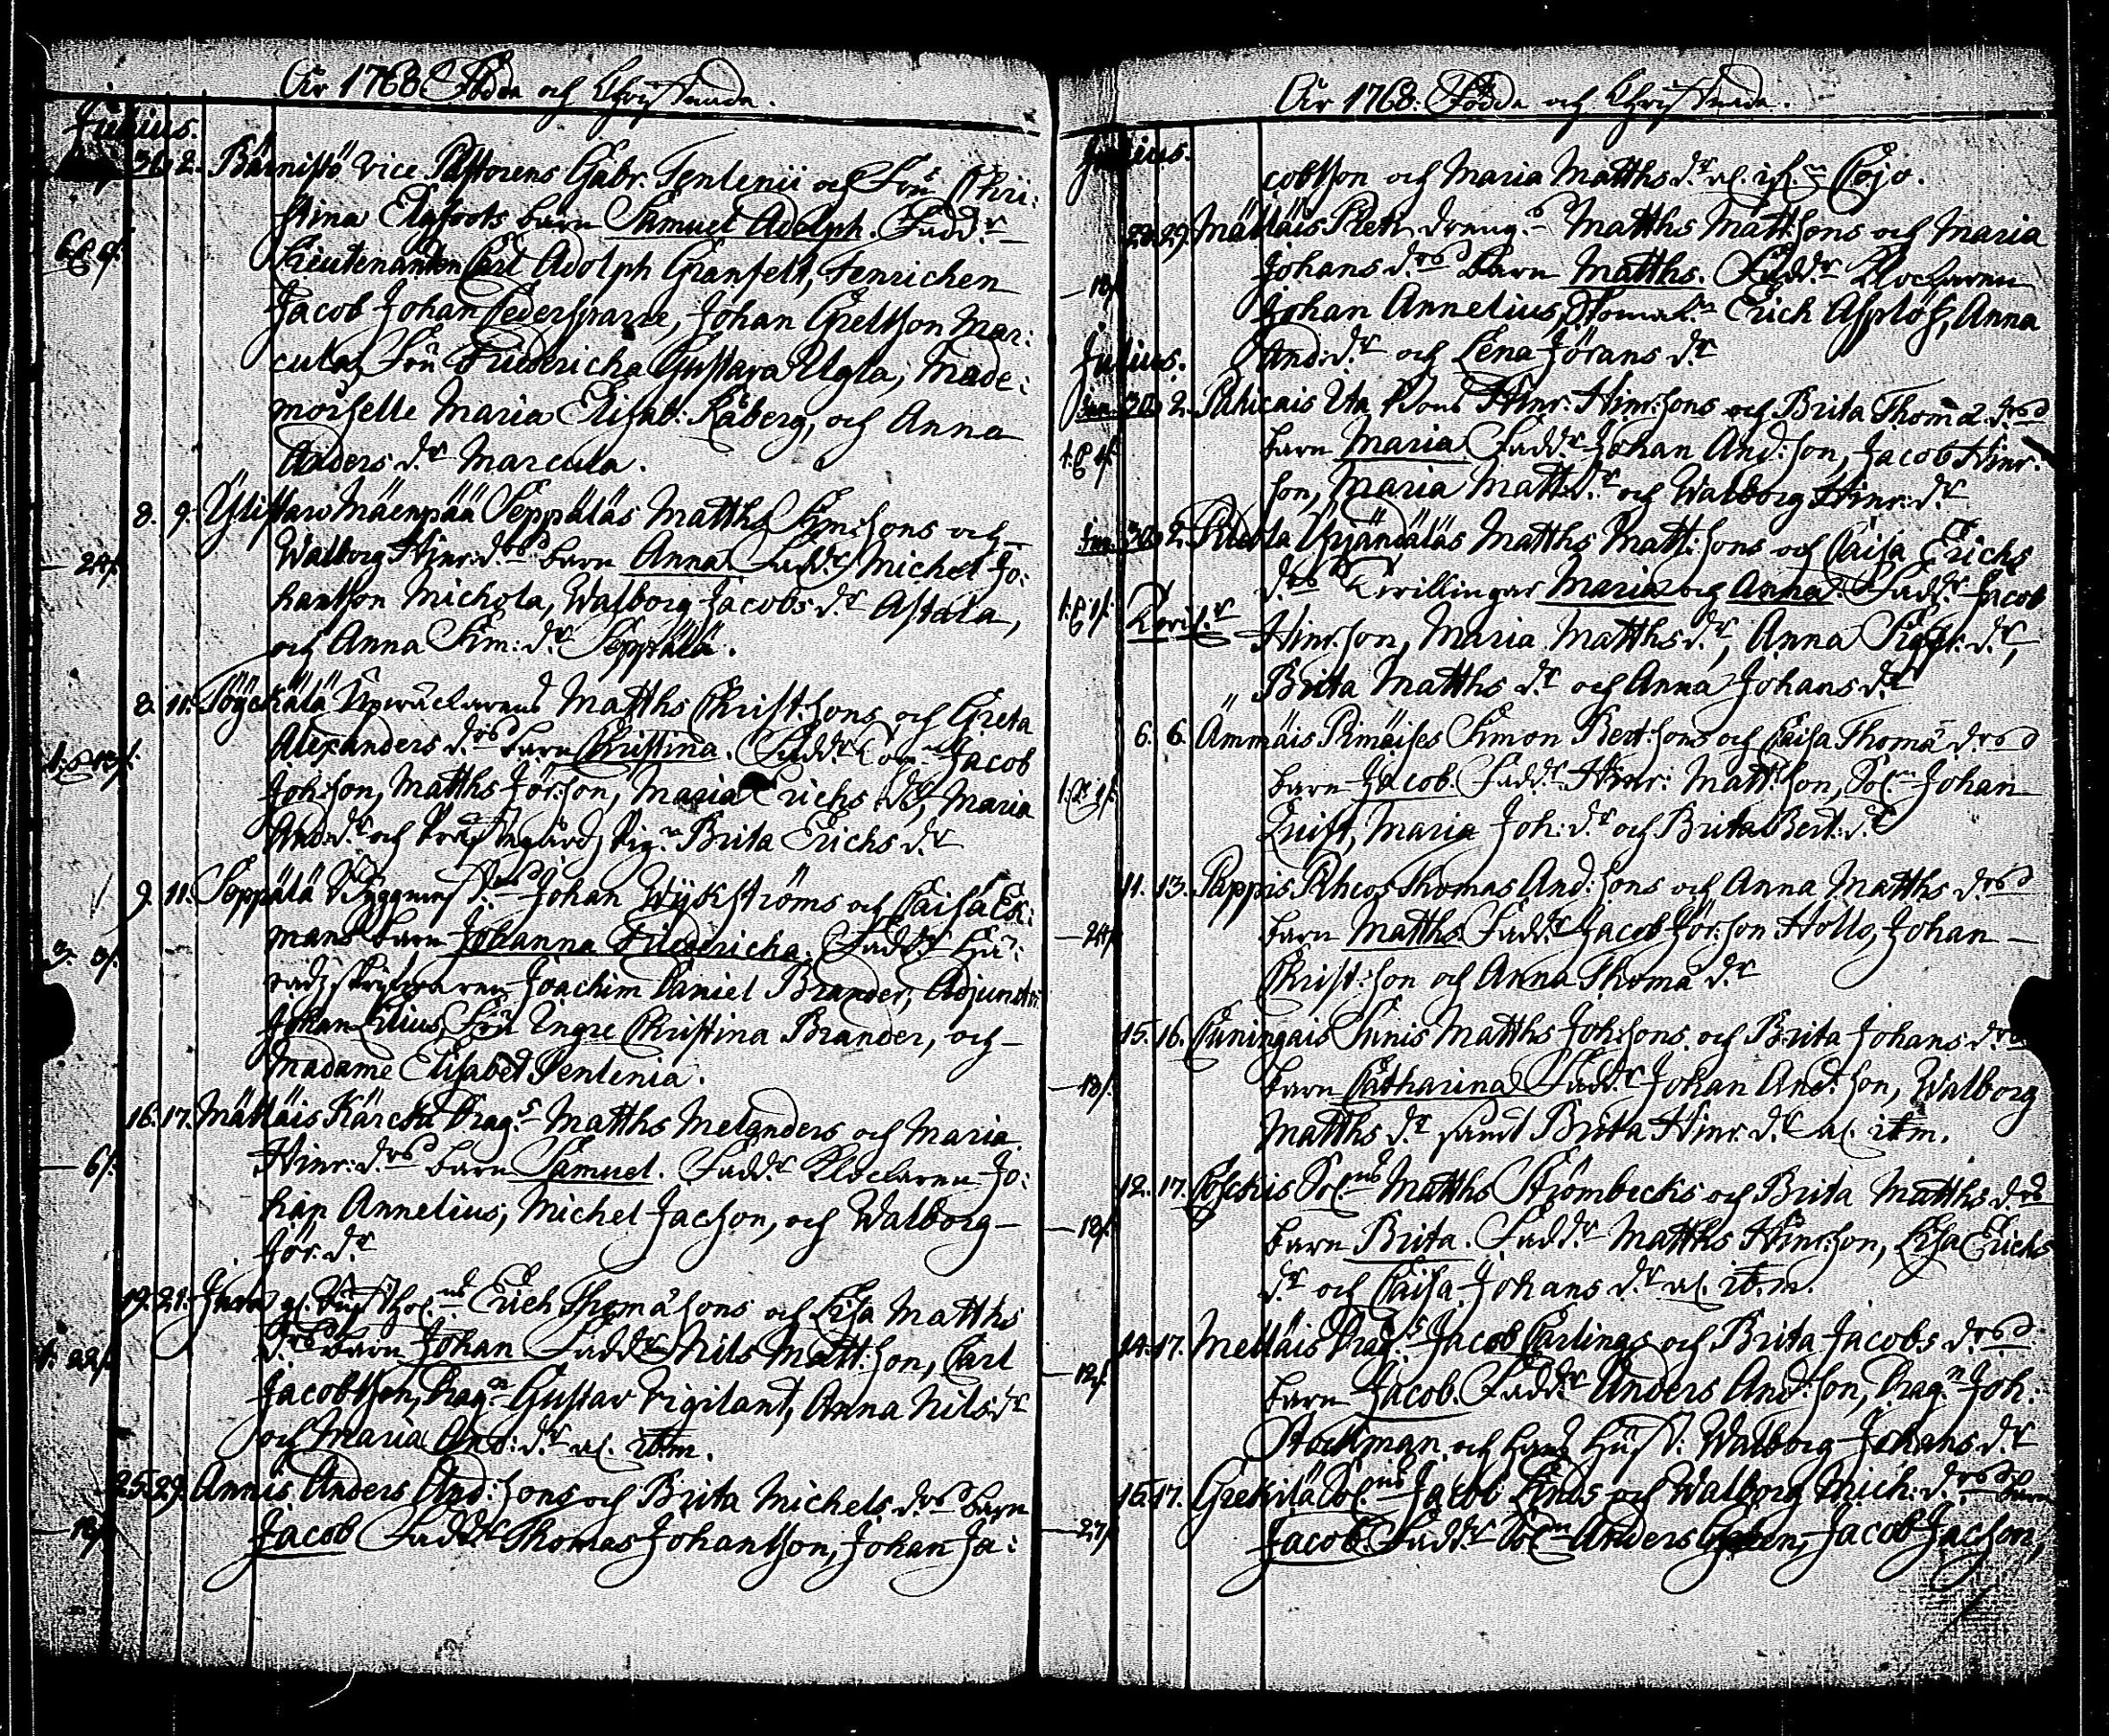 År 1768 Födde och Christnade.
Junius.
31. 2. Bärnistö vice Pastorens Gabr. Tenlenii och Fru Chri:
stina Elgfoots barn Samuel Adolph. Fadd.r
Lieutenanten Carl Adolph Granfelt, Fenrichen
Jacob Johan Cedersparre, Johan Greltson Mar:
cula, Fru Friedericha Gustava Uggla, Made:
moiselle Maria Elisab: Råberg, och Anna
Anders d.r Marcula.
8. 9. Ylistaro Mäenpää Seppäläs Matths Sim:sons och
24
Walborg Hinr:d.rs barn Anna. Fadd.r Michel Jo:
hantson Michola, Walborg Jacobs d.r Astala,
och Anna Sim: d.r Seppälä.
8. 11. Matths Christ:sons och Greta
Alexanders d.rs barn Christina. Fadd.r Jacob
Joh:son, Matths Jör:son, Maria Erichs d.r, Maria
And:d.r och Prästegårds Pig.n Brita Erichs d.r
9. 11. Seppälä Johan Wijkströms och Caisa Ek:
mans barn Johanna Friedericha. Fadd.r Hä:
radsskrifvaren Joachim Daniel Brander, Adjuncten
Johan Lilius, Fru Ingre Christina Brander, och
Madame Elisabet Tenlenia.
16. 17. Mättäis Kärcku Drag.s Matths Melanders och Maria
6
Hinr:d.rs barn Samuel. Fadd.r Klockaren Jo:
han Annelius, Michel Jacson, och Walborg
Jör.d.r
19. 21. Erich Thomæsons och Lisa Matths
d.rs barn Johan Fadd.r Nils Matt:son, Carl
Jacobtson, Drag.n Gustav Vigilant, Anna Nils d.r
och Maria And: d.r al. ibm.
25. 29. Annis Anders And:sons och Brita Michels d.rs barn
Jacob Fadd.r Thomas Johantson, Johan Ja:
År 1768. Födde och Christnade.
Junius.
cobtson och Maria Matths d.r Cojo.
28. 29. Mättäis Matths Matt:sons och Maria
Johans d.rs barn Matths. Fadd.r Klockaren
Johan Annelius, Erich Asplöf, Anna
And:d.r och Lena Jörans d.r
Julius.
Jun. 30. 2. Hinr: Hinr:sons och Brita Thomæ d.rs
barn Maria Fadd.r Johan And:son, Jacob Hinr:
son, Maria Matt:d.r och Walborg Hinr:d.r
Jun. 30. 2. Matths Matt:sons och Caisa Erichs
d.rs Tvillingar Maria och Anna. Fadd.r Jacob
Hinr:son, Maria Matths d.r, Anna Sigfr.d.r,
Brita Matths d.r och Anna Johans d.r
6. 6. Ämmäis Simon Bert:sons och Caisa Thomæ d.rs
barn Jacob. Fadd.r Hinr: Matt:son, Sol.n Johan
Quist, Maria Joh:d.r och Brita Bert:d.r
11. 13. Pappis Thomas And:sons och Anna Matths d.rs
24
barn Matths. Fadd.r Jacob Jör:son Hollo, Johan
Christ:son och Anna Thomæ d.r
15. 16. Cuningais Matths Joh:sons och Brita Johans d.rs
18
barn Catharina. Fadd.r Johan And:son, Walborg
Matths d.r samt Brita Hinr d.r al. ibm.
12. 17. Matths Strömbecks och Brita Matths d.rs
18
barn Brita. Fadd.r Matths Hinr:son, Lisa Erichs
d.r och Caisa Johans d.r al. ibm.
14. 17. Mettäis Drag.s Jacob Carlings och Brita Jacobs d.rs
barn Jacob. Fadd.r Anders And:son, Drag.n Joh:
Stockman och hans hust: Walborg Johans d.r
15. 17. Gretkilä Sol.ns Jacob Linds och Walborg Mich:d.rs barn
27
Jacob. Fadd.r Sol.n Anders Jacob Jacson,